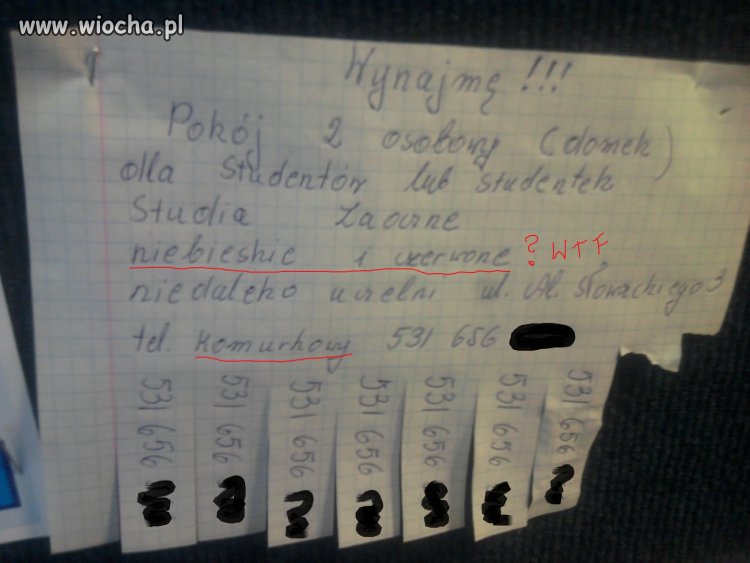 www.wiocha.pl
Wynajmę !!!
Pokój 2 osobowy (domek)
dla studentów lub studentek
Studia zaoczne
niebieskie i czerwone ? WTF
niedaleko uczelni ul. Al. Słowackiego 3
tel. komurkowy 531 656
531 656
531 656
531 656
531 656
531 656
531 656
531 656